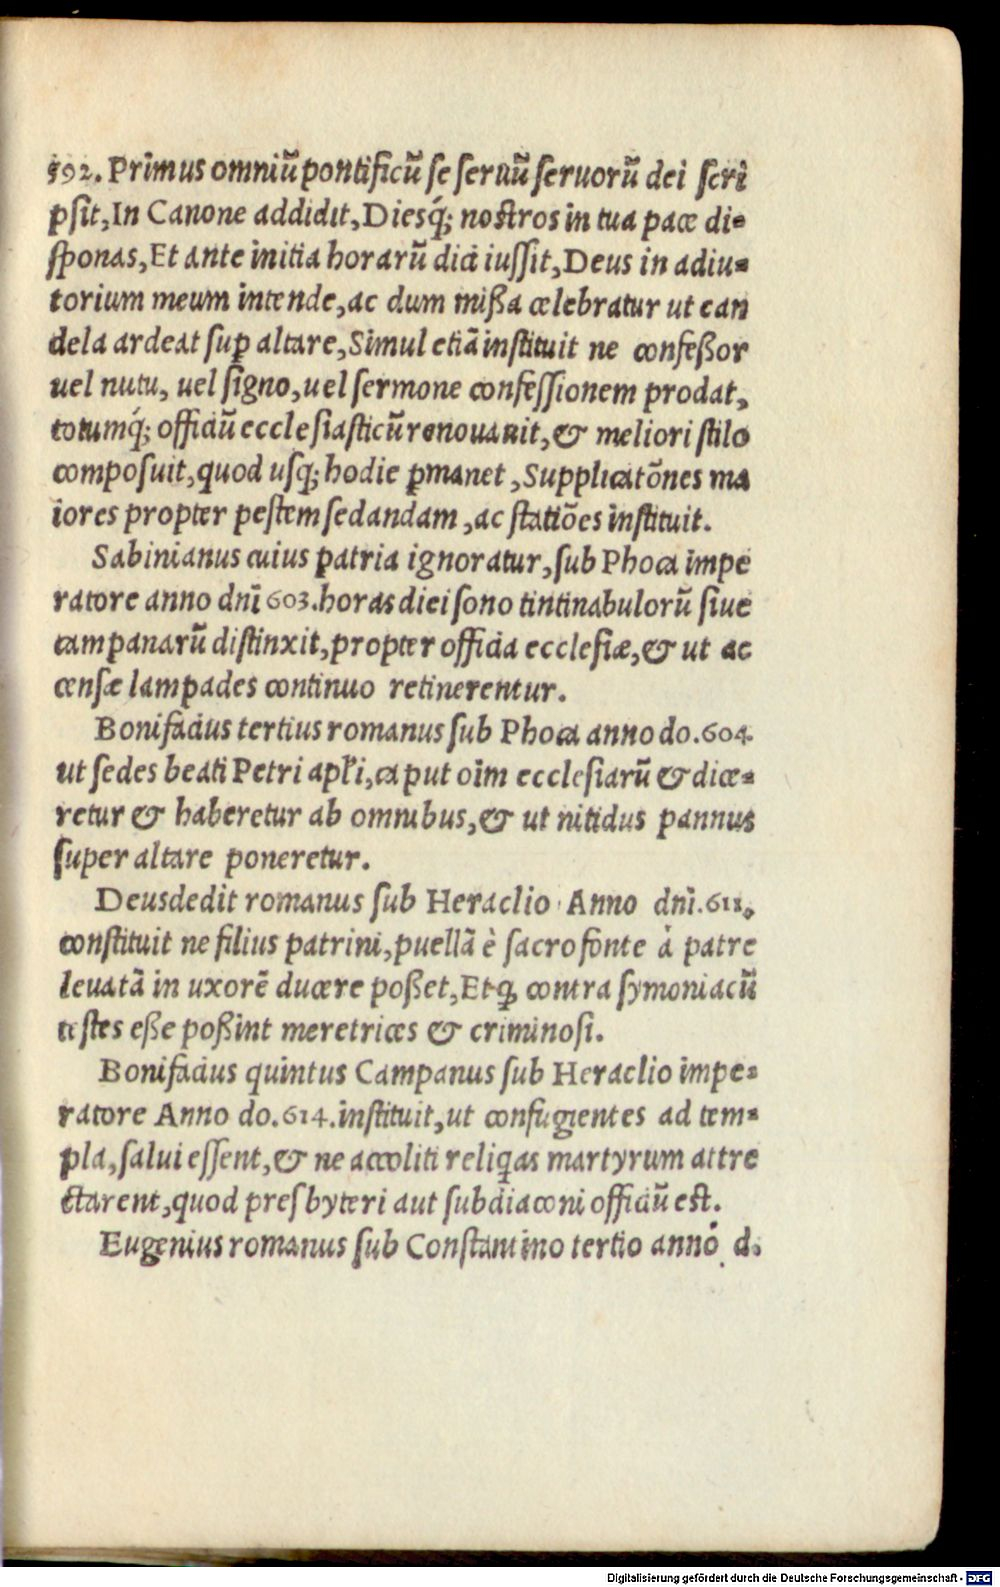 592. Primus omniū pontificū se seruū seruorū dei scri
psit, In Canone addidit, Diesq́; nostros in tua pace di-
sponas, Et ante initia horarū dici iussit, Deus in adiu-
torium meum intende, ac dum mißa celebratur ut can
dela ardeat sup̱ altare, Simul etiā instituit ne confeßor
uel nutu, uel signo, uel sermone confessionem prodat,
totumq́; officiū ecclesiasticū renouauit, & meliori stilo
composuit, quod usq; hodie p̱manet, Supplicatōnes ma
iores propter pestem sedandam, ac statiōes instituit.
Sabinianus cuius patria ignoratur, sub Phoca impe
ratore anno dnī 603. horas diei sono tintinabulorū siue
campanarū distinxit, propter officia ecclesiæ, & ut ac
censæ lampades continuo retinerentur.
Bonifacius tertius romanus sub Phoca anno do. 604.
ut sedes beati Petri apłi, caput oīm ecclesiarū & dice-
retur & haberetur ab omnibus, & ut nitidus pannus
super altare poneretur.
Deusdedit romanus sub Heraclio Anno dnī. 611.
constituit ne filius patrini, puellā è sacro fonte à patre
leuatā in uxorē ducere poßet, Et ꝙ contra symoniacū
testes eße poßint meretrices & criminosi.
Bonifacius quintus Campanus sub Heraclio impe-
ratore Anno do. 614. instituit, ut confugientes ad tem-
pla, salui essent, & ne accoliti reliq̄as martyrum attre
ctarent, quod presbyteri aut subdiaconi officiū est.
Eugenius romanus sub Constantino tertio anno d.
Digitalisierung gefördert durch die Deutsche Forschungsgemeinschaft - DFG